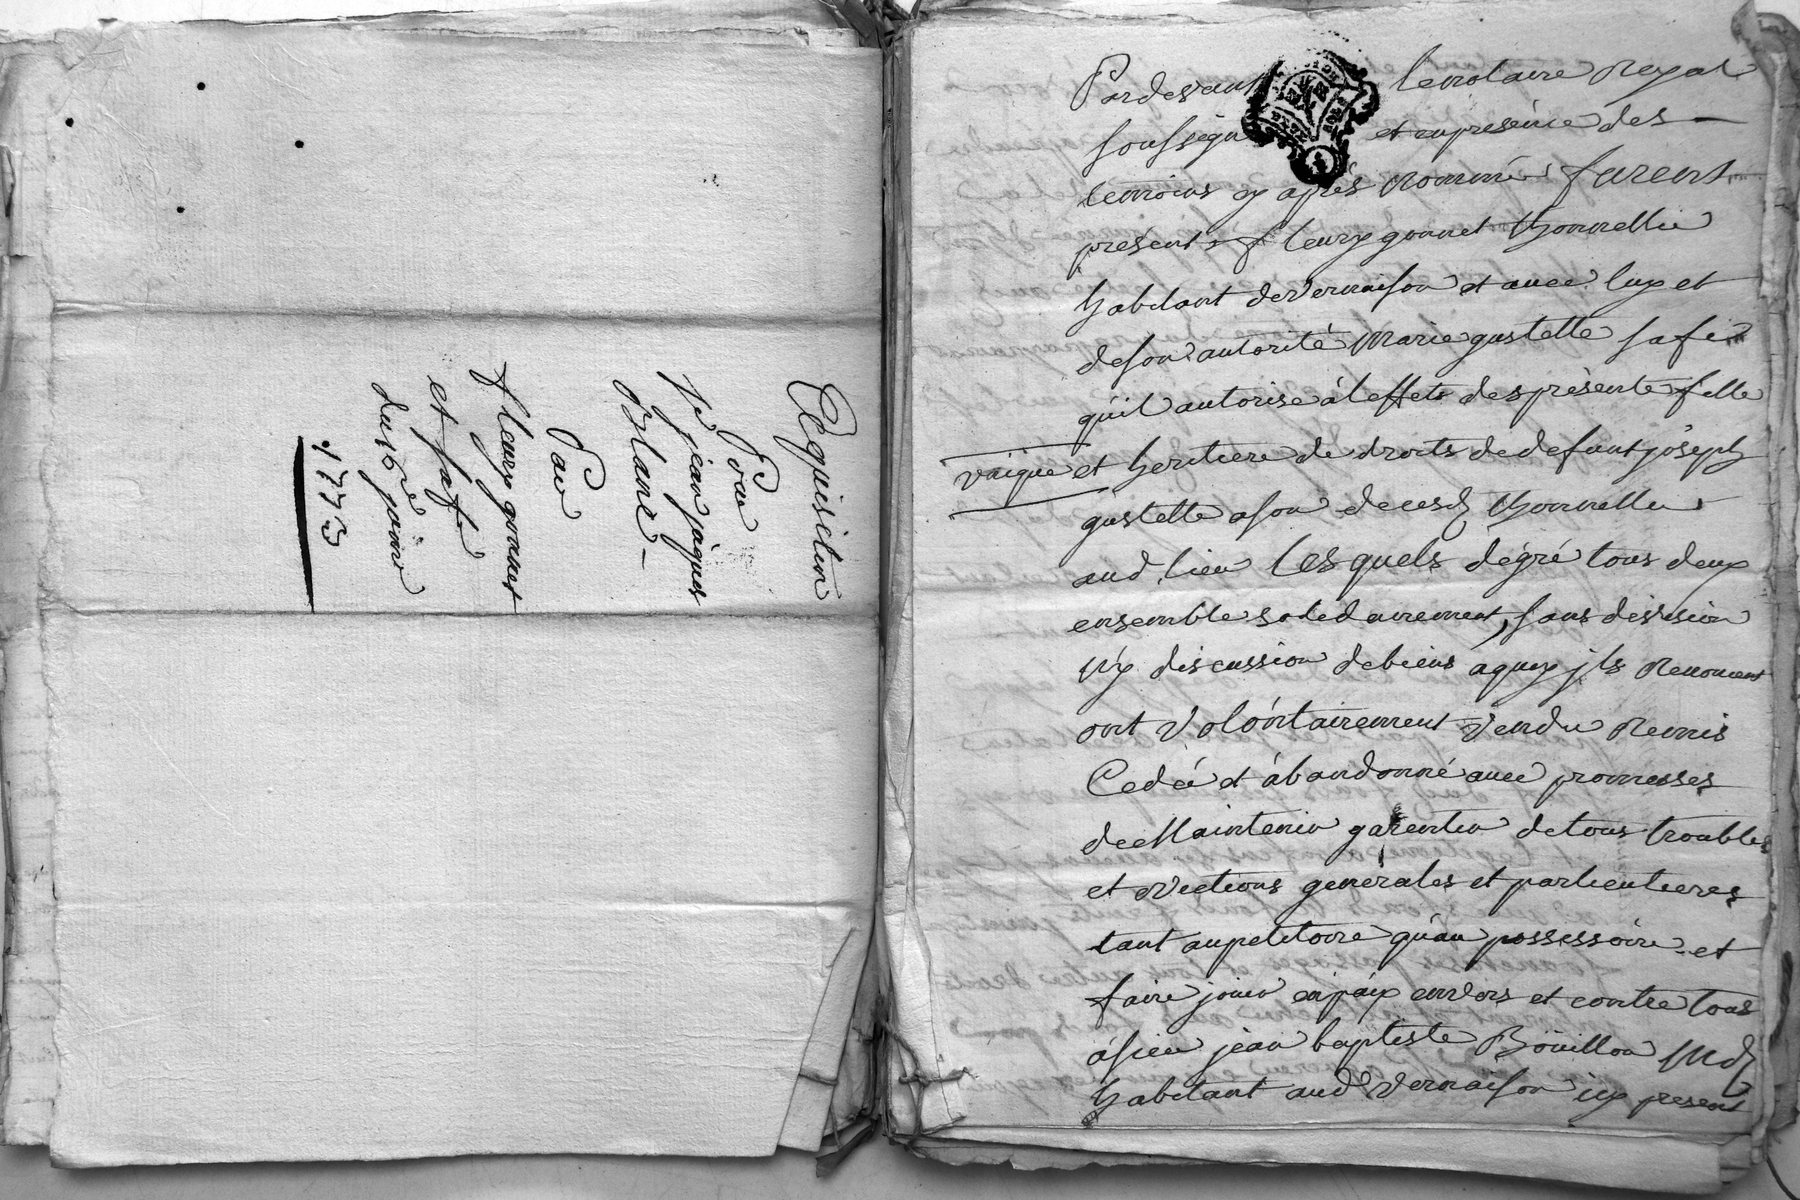 Acquisition
Pour
Sr jean jàques
Blanc –
Par
fleury gonnet
et sa fe
du 16e janv
1773
Pardevant le notaire Royal
soussigné et en présence des
temoins cy après nommés furent
present fleury gonnet thonnellier
habitant de Vernaison et avec luy et
de son autorité Marie gustelle sa fe
qu'il autorise à l'effets des présente fille
et heritiere de droits de defunt joseph
vnique
gustelle a son decesd thonnellier
aud. lieu Les quels dégré tous deux
ensemble solidairement, sans division
n'y discussion de biens a quoy jls Renoncent
ont Volontairement Vendu Remis
Cedéé et àbandonné avec promesses
de Maintenir garentir de tous troubles
et evictions generales et particulieres
tant au petitoire qu'au possessoire et
faire jouir en paix envers et contre tous
à sieur jean baptiste Boüillon Md
habitant aud Vernaison icy present